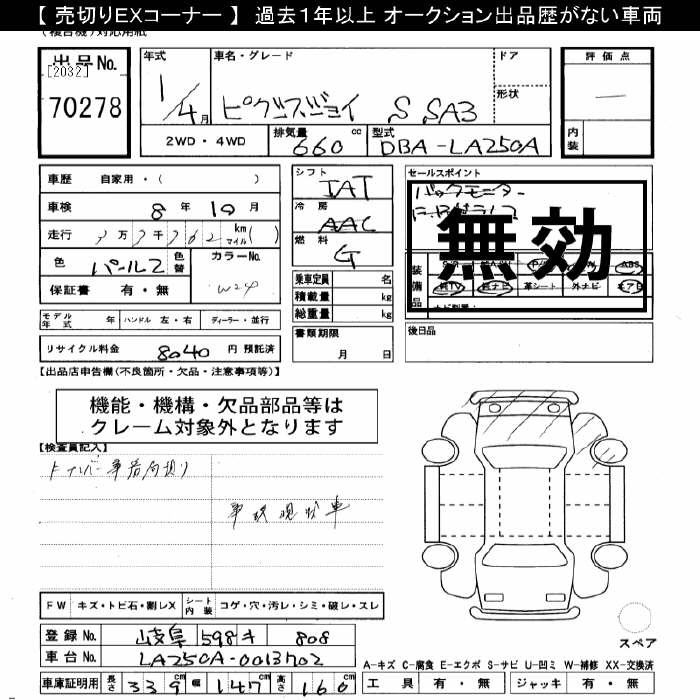 【 売切りEXコーナー 】 過去1年以上 オークション出品歴がない車両
出品No.
[2032]
70278
年式 1/4月
車名・グレード ピクシスジョイ S SA3
ドア
形状
2WD・4WD
排気量 660 cc
型式 DBA-LA250A
評価点
内装
車歴 自家用・( )
車検 8年 10月
走行 km マイル ( )
色 パール2 色替
カラーNo. W24
保証書 有・無
モデル年式 年 ハンドル 左・右 ディーラー・並行
リサイクル料金 8040 円 預託済
シフト IAT
冷房 AAC
燃料 G
乗車定員 名
積載量 kg
総重量 kg
書類期限
月 日
セールスポイント
バックモニター
無効
装備品
純TV 純ナビ 革シート 外ナビ エアB
ABS
後日品
【出品店申告欄(不良箇所・欠品・注意事項等)】
機能・機構・欠品部品等は
クレーム対象外となります
【検査員記入】
事故現状車
FW キズ・トビ石・割レX
シート内装 コゲ・穴・汚レ・シミ・破レ・スレ
登録No. 岐阜 598 き 808
車台No. LA250A-0013702
車庫証明用 長さ 339cm 幅 147cm 高さ 160cm
スペア
A-キズ C-腐食 E-エクボ S-サビ U-凹ミ W-補修 XX-交換済
工具 有・無 ジャッキ 有・無